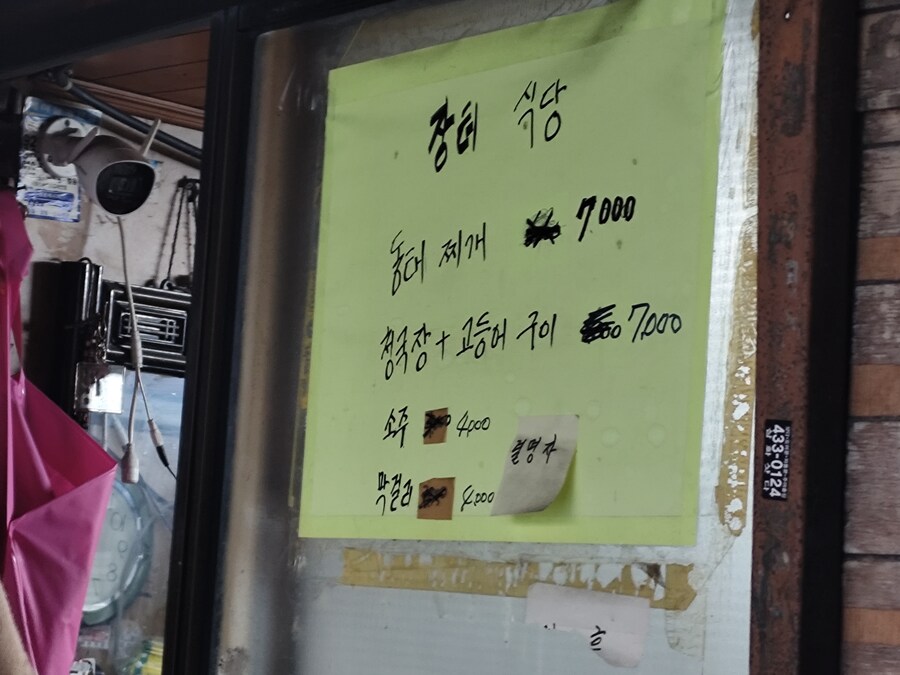 장터 식당
동태 찌개 7000
청국장 + 고등어 구이 7,000
소주 4,000
막걸리 4,000
결명자
흔
433-0124